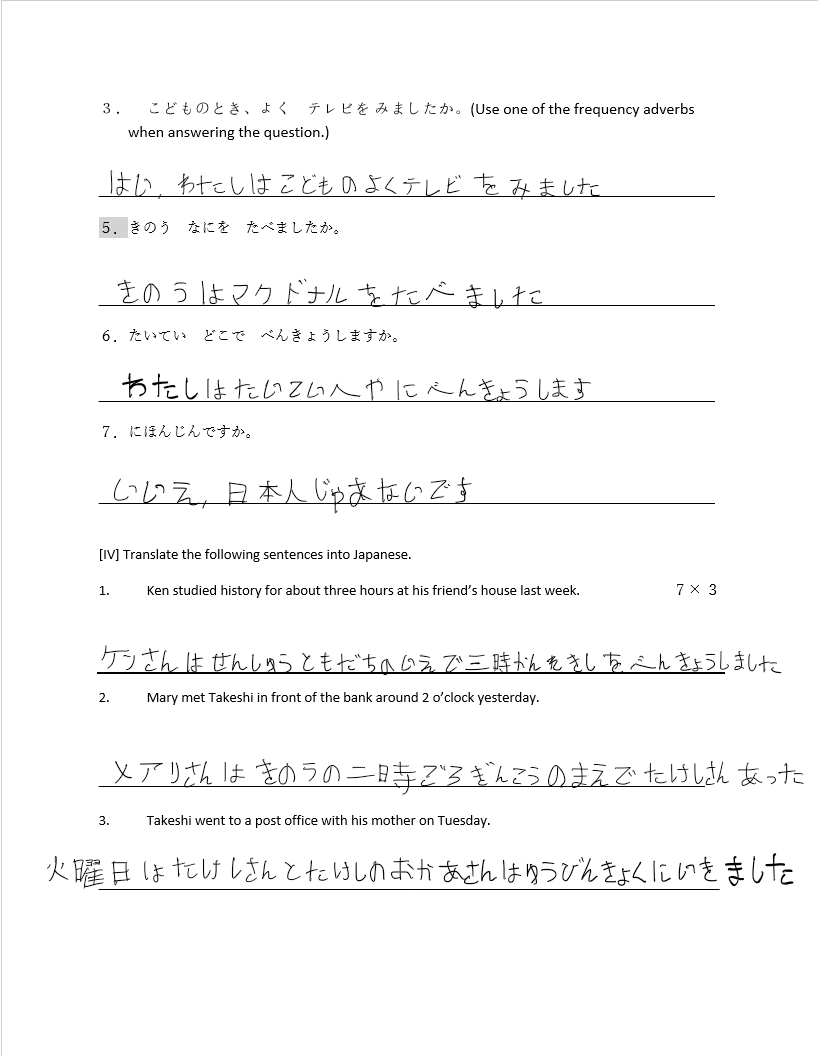 ３． こどものとき、よく テレビを みましたか。(Use one of the frequency adverbs
when answering the question.)
はい, わたしはこどものよくテレビをみました
５．きのう なにを たべましたか。
きのうはマクドナルをたべました
６．たいてい どこで べんきょうしますか。
わたしはたいていへやにべんきょうします
７．にほんじんですか。
いいえ, 日本人じゅあないです
[IV] Translate the following sentences into Japanese.
1. Ken studied history for about three hours at his friend’s house last week. ７× ３
ケンさんはせんしゅうともだちのいえで三時かんれきしをべんきょうしました
2. Mary met Takeshi in front of the bank around 2 o’clock yesterday.
メアリさんはきのうの二時ごろぎんこうのまえでたけしさんあった
3. Takeshi went to a post office with his mother on Tuesday.
火曜日はたけしさんとたけしのおかあさんはゆうびんきょくにいきました